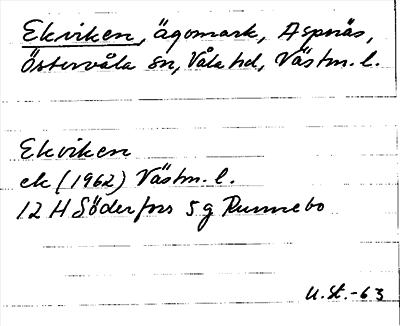 Ekviken, ägomark, Aspnäs,
Östervåla sn, Våla hd, Västm. l.
Ekviken
ek (1962) Västm. l.
12 H Söderfors 5 g Runnebo
U. St. -63